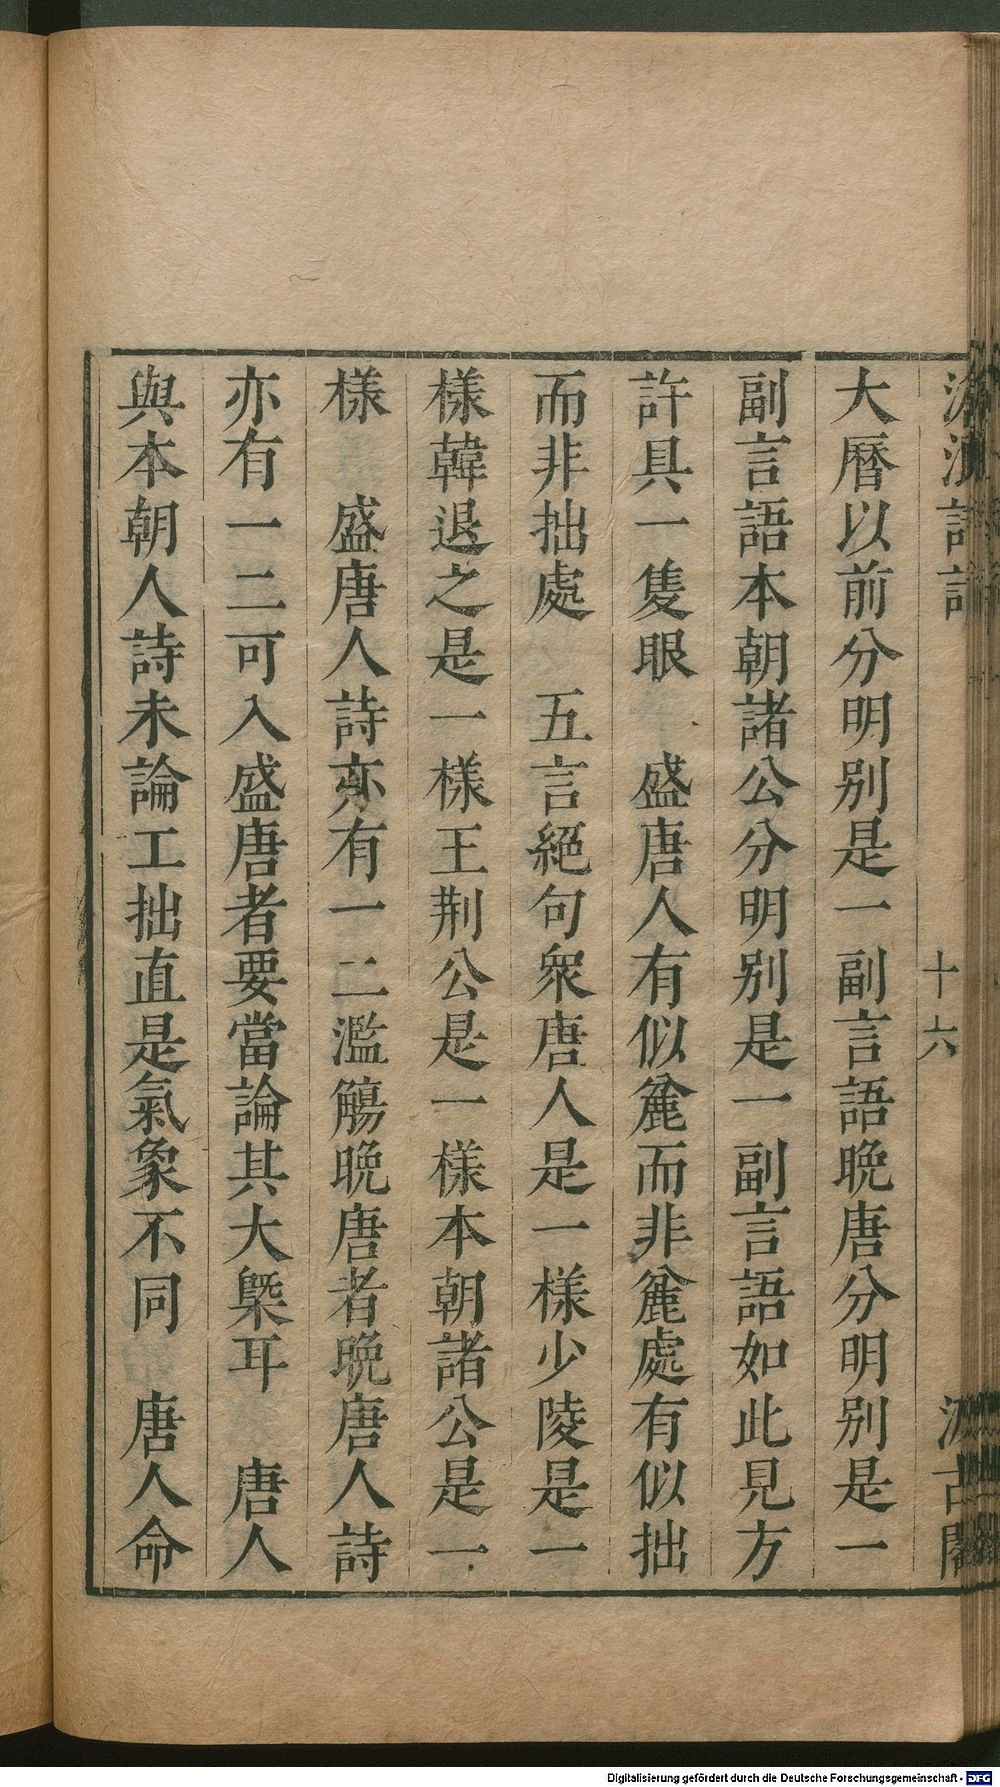 滄浪詩話
十六
汲古閣
大曆以前分明別是一副言語晚唐分明別是一
副言語本朝諸公分明別是一副言語如此見方
許具一隻眼　盛唐人有似麄而非麄處有似拙
而非拙處　五言絕句衆唐人是一樣少陵是一
樣韓退之是一樣王荆公是一樣本朝諸公是一
樣　盛唐人詩亦有一二濫觴晚唐者晚唐人詩
亦有一二可入盛唐者要當論其大槩耳　唐人
與本朝人詩未論工拙直是氣象不同　唐人命
Digitalisierung gefördert durch die Deutsche Forschungsgemeinschaft - DFG